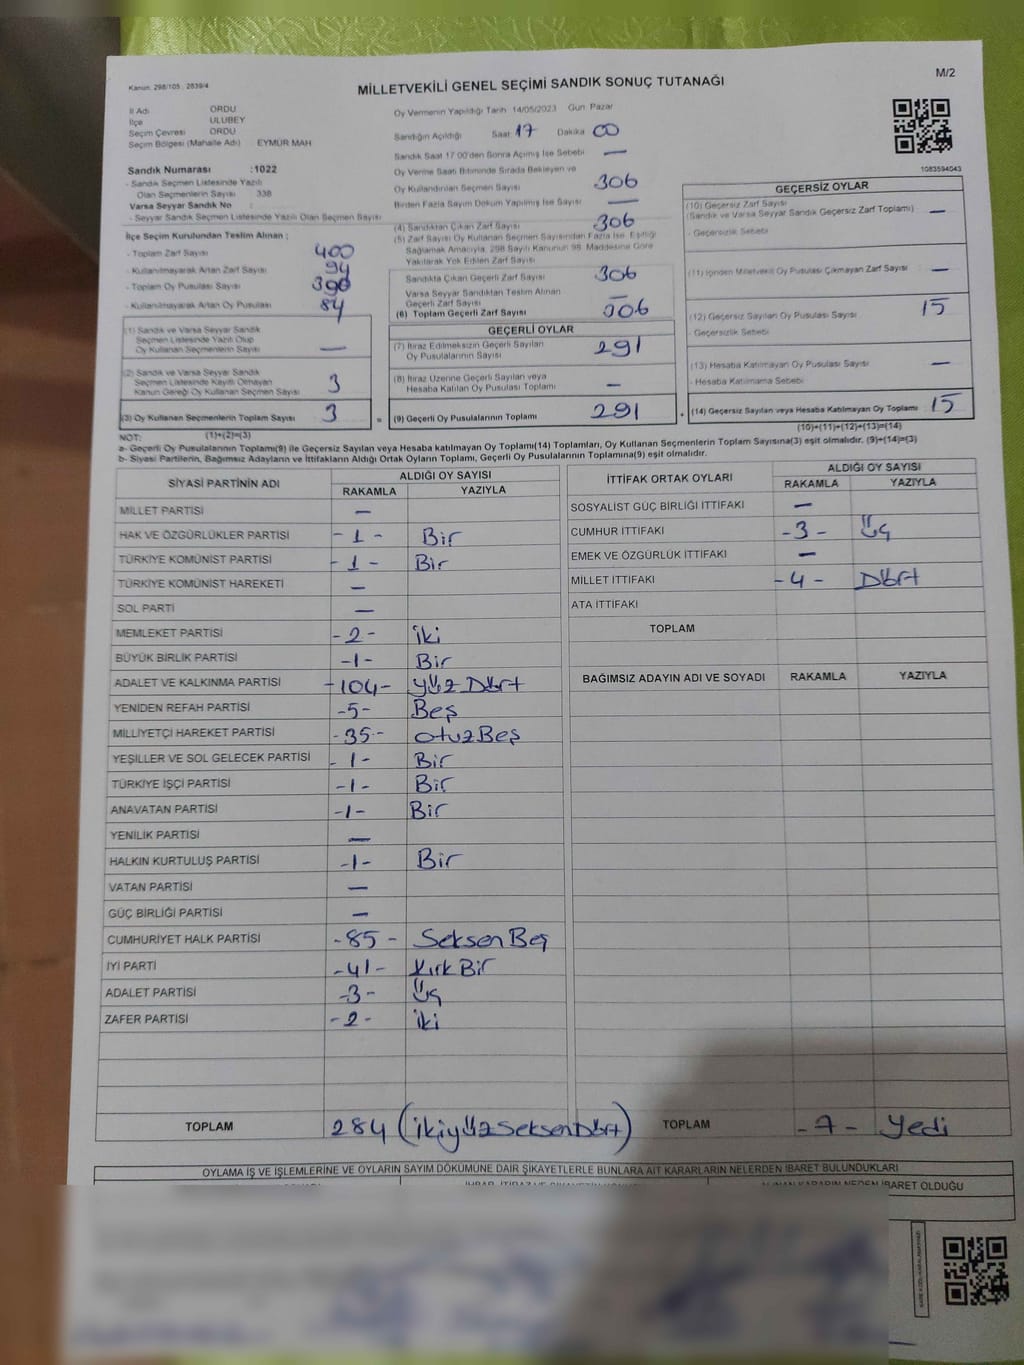 Kanun: 298/105, 2839/4
MİLLETVEKİLİ GENEL SEÇİMİ SANDIK SONUÇ TUTANAĞI
M/2
İl Adı ORDU
İlçe ULUBEY
Seçim Çevresi ORDU
Seçim Bölgesi (Mahalle Adı) EYMÜR MAH
Sandık Numarası :1022
- Sandık Seçmen Listesinde Yazılı
Olan Seçmenlerin Sayısı 338
Varsa Seyyar Sandık No :
- Seyyar Sandık Seçmen Listesinde Yazılı Olan Seçmen Sayısı
İlçe Seçim Kurulundan Teslim Alınan ;
- Toplam Zarf Sayısı 400
- Kullanılmayarak Artan Zarf Sayısı 94
- Toplam Oy Pusulası Sayısı 390
- Kullanılmayarak Artan Oy Pusulası 84
(1) Sandık ve Varsa Seyyar Sandık
Seçmen Listesinde Yazılı Olup
Oy Kullanan Seçmenlerin Sayısı —
(2) Sandık ve Varsa Seyyar Sandık
Seçmen Listesinde Kayıtlı Olmayan
Kanun Gereği Oy Kullanan Seçmen Sayısı 3
(3) Oy Kullanan Seçmenlerin Toplam Sayısı 3 =
(1)+(2)=(3)
Oy Vermenin Yapıldığı Tarih 14/05/2023 Gün: Pazar
Sandığın Açıldığı Saat 17 Dakika 00
Sandık Saat 17:00'den Sonra Açılmış İse Sebebi —
Oy Verme Saati Bitiminde Sırada Bekleyen ve
Oy Kullandırılan Seçmen Sayısı 306
Birden Fazla Sayım Döküm Yapılmış İse Sayısı —
(4) Sandıktan Çıkan Zarf Sayısı 306
(5) Zarf Sayısı Oy Kullanan Seçmen Sayısından Fazla İse, Eşitliği
Sağlamak Amacıyla, 298 Sayılı Kanunun 98. Maddesine Göre
Yakılarak Yok Edilen Zarf Sayısı —
Sandıkta Çıkan Geçerli Zarf Sayısı 306
Varsa Seyyar Sandıktan Teslim Alınan
Geçerli Zarf Sayısı —
(6) Toplam Geçerli Zarf Sayısı 306
GEÇERLİ OYLAR
(7) İtiraz Edilmeksizin Geçerli Sayılan
Oy Pusulalarının Sayısı 291
(8) İtiraz Üzerine Geçerli Sayılan veya
Hesaba Katılan Oy Pusulası Toplamı —
(9) Geçerli Oy Pusulalarının Toplamı 291 +
1083594043
GEÇERSİZ OYLAR
(10) Geçersiz Zarf Sayısı
(Sandık ve Varsa Seyyar Sandık Geçersiz Zarf Toplamı) —
- Geçersizlik Sebebi
(11) İçinden Milletvekili Oy Pusulası Çıkmayan Zarf Sayısı —
(12) Geçersiz Sayılan Oy Pusulası Sayısı 15
- Geçersizlik Sebebi
(13) Hesaba Katılmayan Oy Pusulası Sayısı —
- Hesaba Katılmama Sebebi
(14) Geçersiz Sayılan veya Hesaba Katılmayan Oy Toplamı 15
(10)+(11)+(12)+(13)=(14)
NOT:
a- Geçerli Oy Pusulalarının Toplamı(9) ile Geçersiz Sayılan veya Hesaba katılmayan Oy Toplamı(14) Toplamları, Oy Kullanan Seçmenlerin Toplam Sayısına(3) eşit olmalıdır. (9)+(14)=(3)
b- Siyasi Partilerin, Bağımsız Adayların ve İttifakların Aldığı Ortak Oyların Toplamı, Geçerli Oy Pusulalarının Toplamına(9) eşit olmalıdır.
SİYASİ PARTİNİN ADI ALDIĞI OY SAYISI
RAKAMLA YAZIYLA
MİLLET PARTİSİ —
HAK VE ÖZGÜRLÜKLER PARTİSİ -1- Bir
TÜRKİYE KOMÜNİST PARTİSİ -1- Bir
TÜRKİYE KOMÜNİST HAREKETİ —
SOL PARTİ —
MEMLEKET PARTİSİ -2- iki
BÜYÜK BİRLİK PARTİSİ -1- Bir
ADALET VE KALKINMA PARTİSİ -104- yüz Dört
YENİDEN REFAH PARTİSİ -5- Beş
MİLLİYETÇİ HAREKET PARTİSİ -35- otuz Beş
YEŞİLLER VE SOL GELECEK PARTİSİ -1- Bir
TÜRKİYE İŞÇİ PARTİSİ -1- Bir
ANAVATAN PARTİSİ -1- Bir
YENİLİK PARTİSİ —
HALKIN KURTULUŞ PARTİSİ -1- Bir
VATAN PARTİSİ —
GÜÇ BİRLİĞİ PARTİSİ —
CUMHURİYET HALK PARTİSİ -85- Seksen Beş
İYİ PARTİ -41- Kırk Bir
ADALET PARTİSİ -3- üç
ZAFER PARTİSİ -2- iki
TOPLAM 284 (ikiyüzSeksenDört)
İTTİFAK ORTAK OYLARI ALDIĞI OY SAYISI
RAKAMLA YAZIYLA
SOSYALİST GÜÇ BİRLİĞİ İTTİFAKI —
CUMHUR İTTİFAKI -3- üç
EMEK VE ÖZGÜRLÜK İTTİFAKI —
MİLLET İTTİFAKI -4- Dört
ATA İTTİFAKI
TOPLAM
BAĞIMSIZ ADAYIN ADI VE SOYADI RAKAMLA YAZIYLA
TOPLAM -7- Yedi
OYLAMA İŞ VE İŞLEMLERİNE VE OYLARIN SAYIM DÖKÜMÜNE DAİR ŞİKAYETLERLE BUNLARA AİT KARARLARIN NELERDEN İBARET BULUNDUKLARI
ALINAN KARARIN NEDEN İBARET OLDUĞU